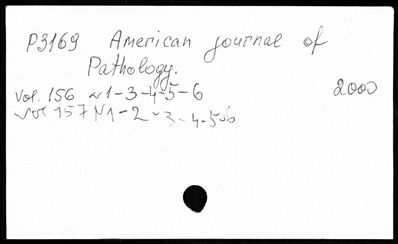 P3169 American journal of
Pathology.
Vol. 156 N1-3-4-5-6 2000
Vol 157 N1-2-3-4-5-6